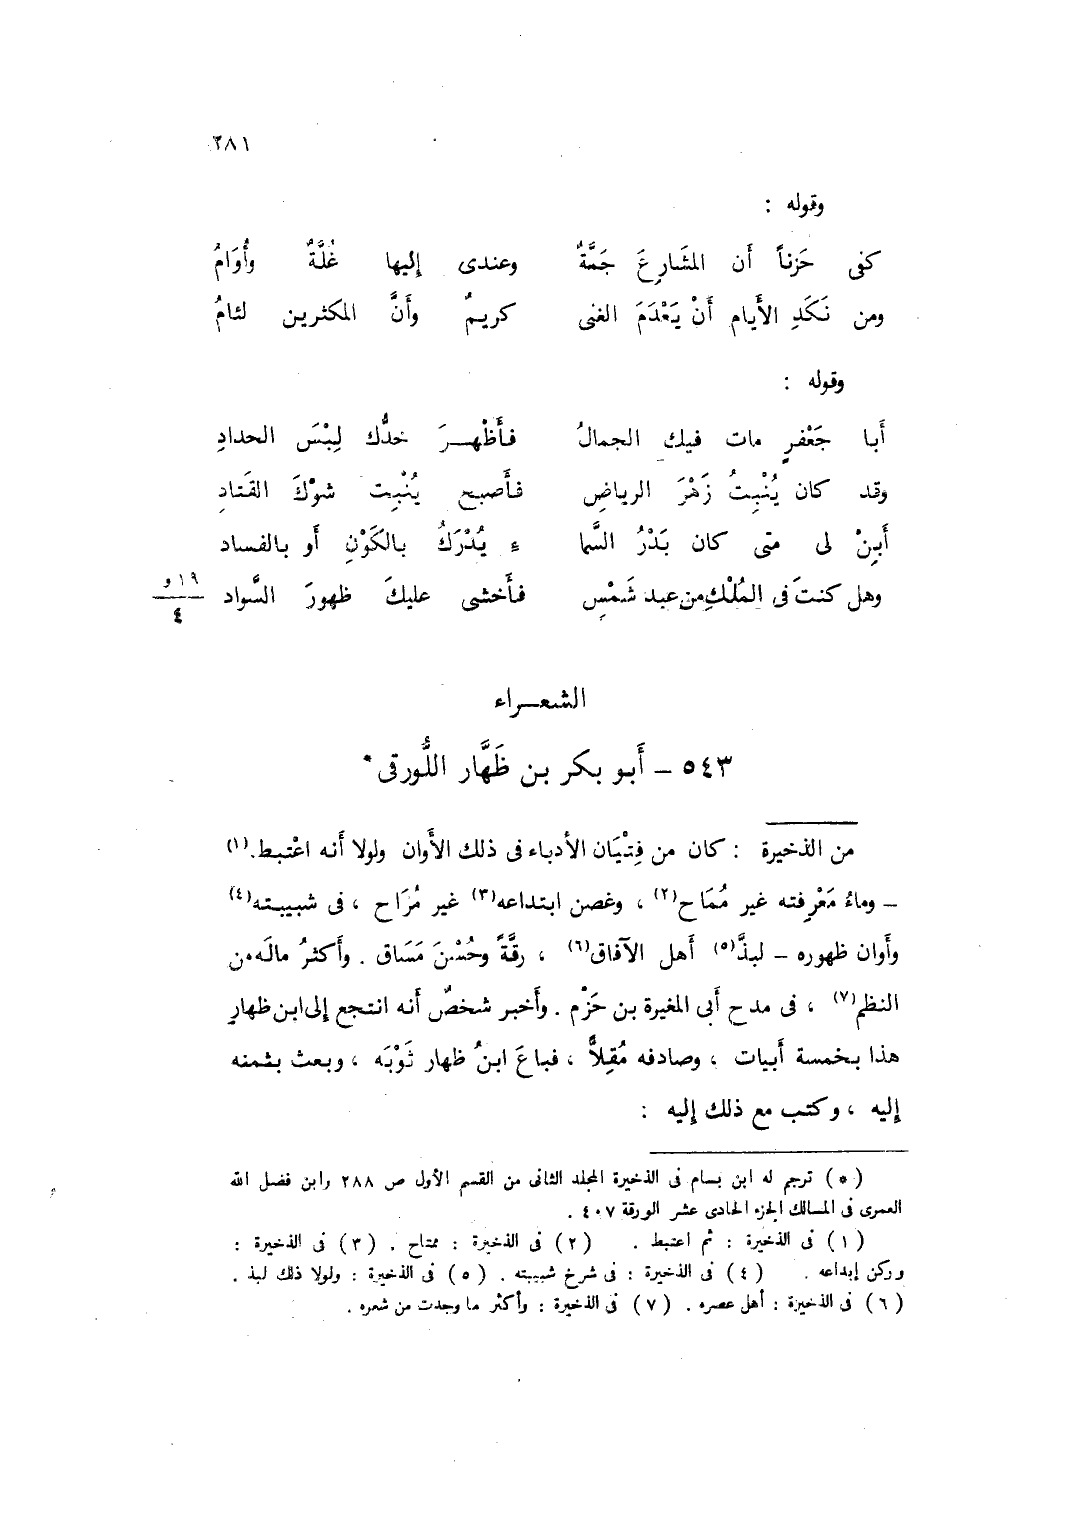 ٢٨١
وقوله :
كفى حَزناً أن المشَارِعَ جَمَّةٌ وعندى إليها غُلَّةٌ وأُوَامُ
ومن نَكَدِ الأَيام أَنْ يَعْدَمَ الغنى كريمٌ وأَنَّ المكثرين لئامُ
وقوله :
أَبا جَعْفرٍ مات فيك الجمالُ فأَظْهــرَ خدُّك لِبْسَ الحدادِ
وقد كان يُنْبِتُ زَهْرَ الرياضِ فأَصبح يُنْبِت شوْكَ القَتادِ
أَبِنْ لى متى كان بَدْرُ السَّما ء يُدْرَكُ بالكَوْنِ أَو بالفساد
وهل كنتَ فى المُلْكِ من عبد شَمْسٍ فأَخشى عليكَ ظهورَ السَّواد
١٩ و
٤
الشعــراء
٥٤٣ – أَبو بكر بن ظَهَّار اللُّورقى*
من الذخيرة : كان من فِتْيَان الأدباء فى ذلك الأَوان ولولا أَنه اعْتبط.(١)
– وماءُ مَعْرِفته غير مُمَاح(٢) ، وغصن ابتداعه(٣) غير مُرَاح ، فى شبيبته(٤)
وأَوان ظهوره – لبذَّ(٥) أهل الآفاق(٦) ، رقَّةً وحُسْنَ مَسَاق . وأَكثرُ مالَه من
النظم(٧) ، فى مدح أَبى المغيرة بن حَزْم . وأَخبر شخصٌ أَنه انتجع إلى ابن ظهارٍ
هذا بخمسة أَبيات ، وصادفه مُقِلاًّ ، فباعَ ابنُ ظهار ثَوْبَه ، وبعث بثمنه
إليه ، وكتب مع ذلك إليه :
(*) ترجم له ابن بسام فى الذخيرة المجلد الثانى من القسم الأول ص ٢٨٨ وابن فضل الله
العمرى فى المسالك الجزء الحادى عشر الورقة ٤٠٧ .
(١) فى الذخيرة : ثم اعتبط . (٢) فى الذخيرة : ممتاح . (٣) فى الذخيرة :
وركن إبداعه . (٤) فى الذخيرة : فى شرخ شبيبته . (٥) فى الذخيرة : ولولا ذلك لبذ .
(٦) فى الذخيرة : أهل عصره . (٧) فى الذخيرة : وأكثر ما وجدت من شعره .